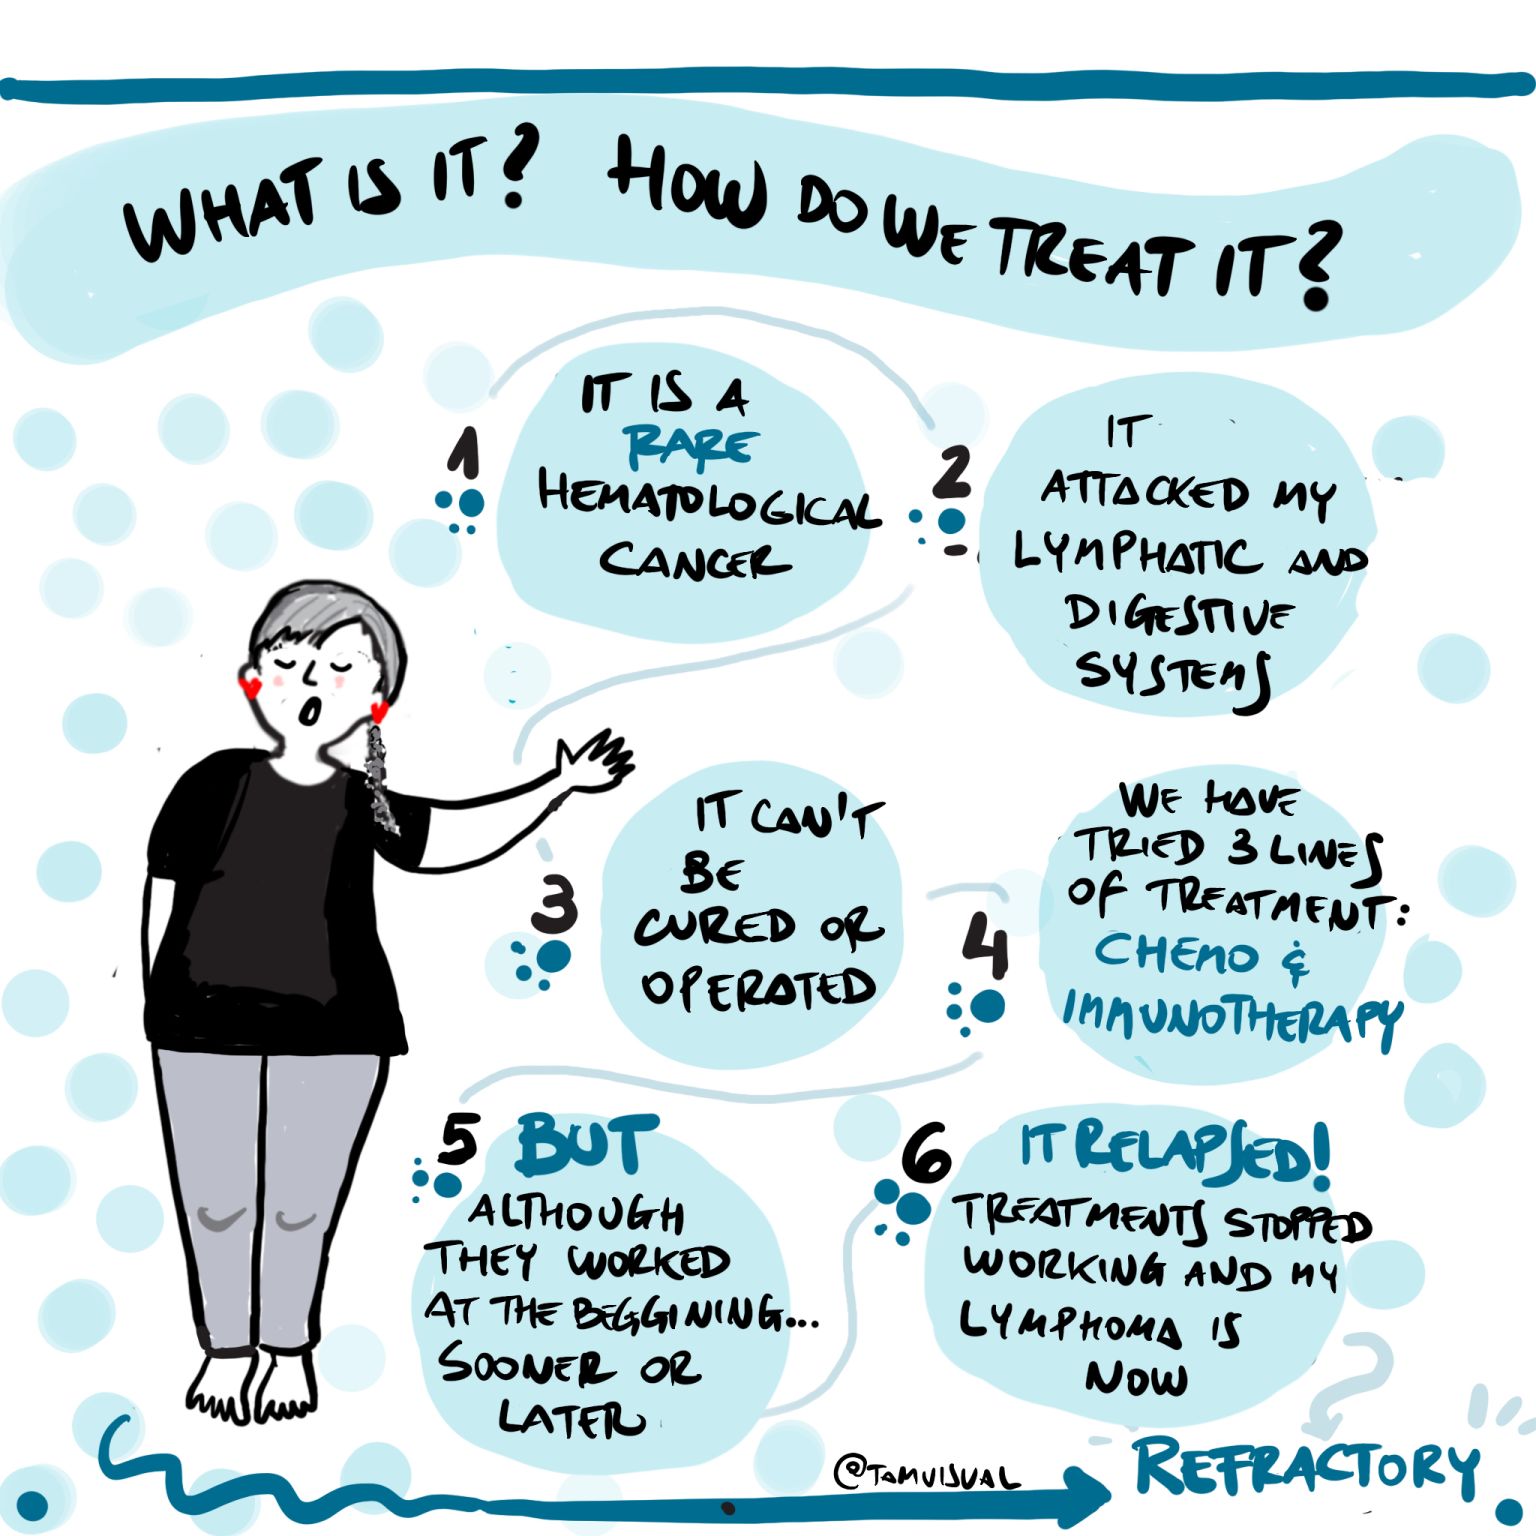 WHAT IS IT? HOW DO WE TREAT IT?
1
IT IS A
RARE
HEMATOLOGICAL
CANCER
2
IT
ATTACKED MY
LYMPHATIC AND
DIGESTIVE
SYSTEMS
3
IT CAN'T
BE
CURED OR
OPERATED
4
WE HAVE
TRIED 3 LINES
OF TREATMENT:
CHEMO &
IMMUNOTHERAPY
5
BUT
ALTHOUGH
THEY WORKED
AT THE BEGGINING...
SOONER OR
LATER
6
IT RELAPSED!
TREATMENTS STOPPED
WORKING AND MY
LYMPHOMA IS
NOW
REFRACTORY
@TAMVISUAL